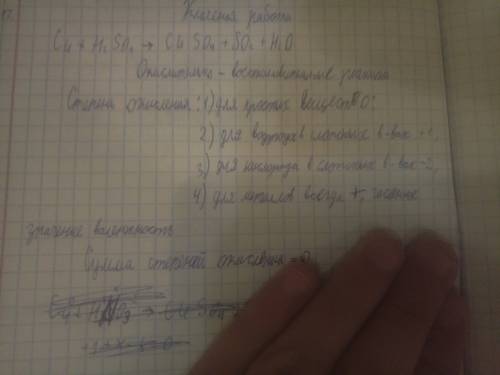 17.
Классная работа
Cu + H₂SO₄ → CuSO₄ + SO₂ + H₂O
Окислительно - восстановительные реакции
Степень окисления: 1) для простых веществ 0;
2) для водорода в сложных в-вах +1,
3) для кислорода в сложных в-вах -2,
4) для металлов всегда +,
значение валентность
Сумма степеней окисления = 0